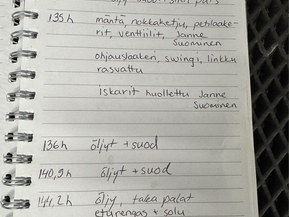 135h mäntä, nokkaketju, petilaake-
rit, venttiilit, Janne
Suominen
ohjauslaaken, swingi, linkku
rasvattu
iskarit huollettu Janne
Suominen
136h öljyt + suod
140,9h öljyt + suod
144,2h öljy, taka palat
eturengas + solu